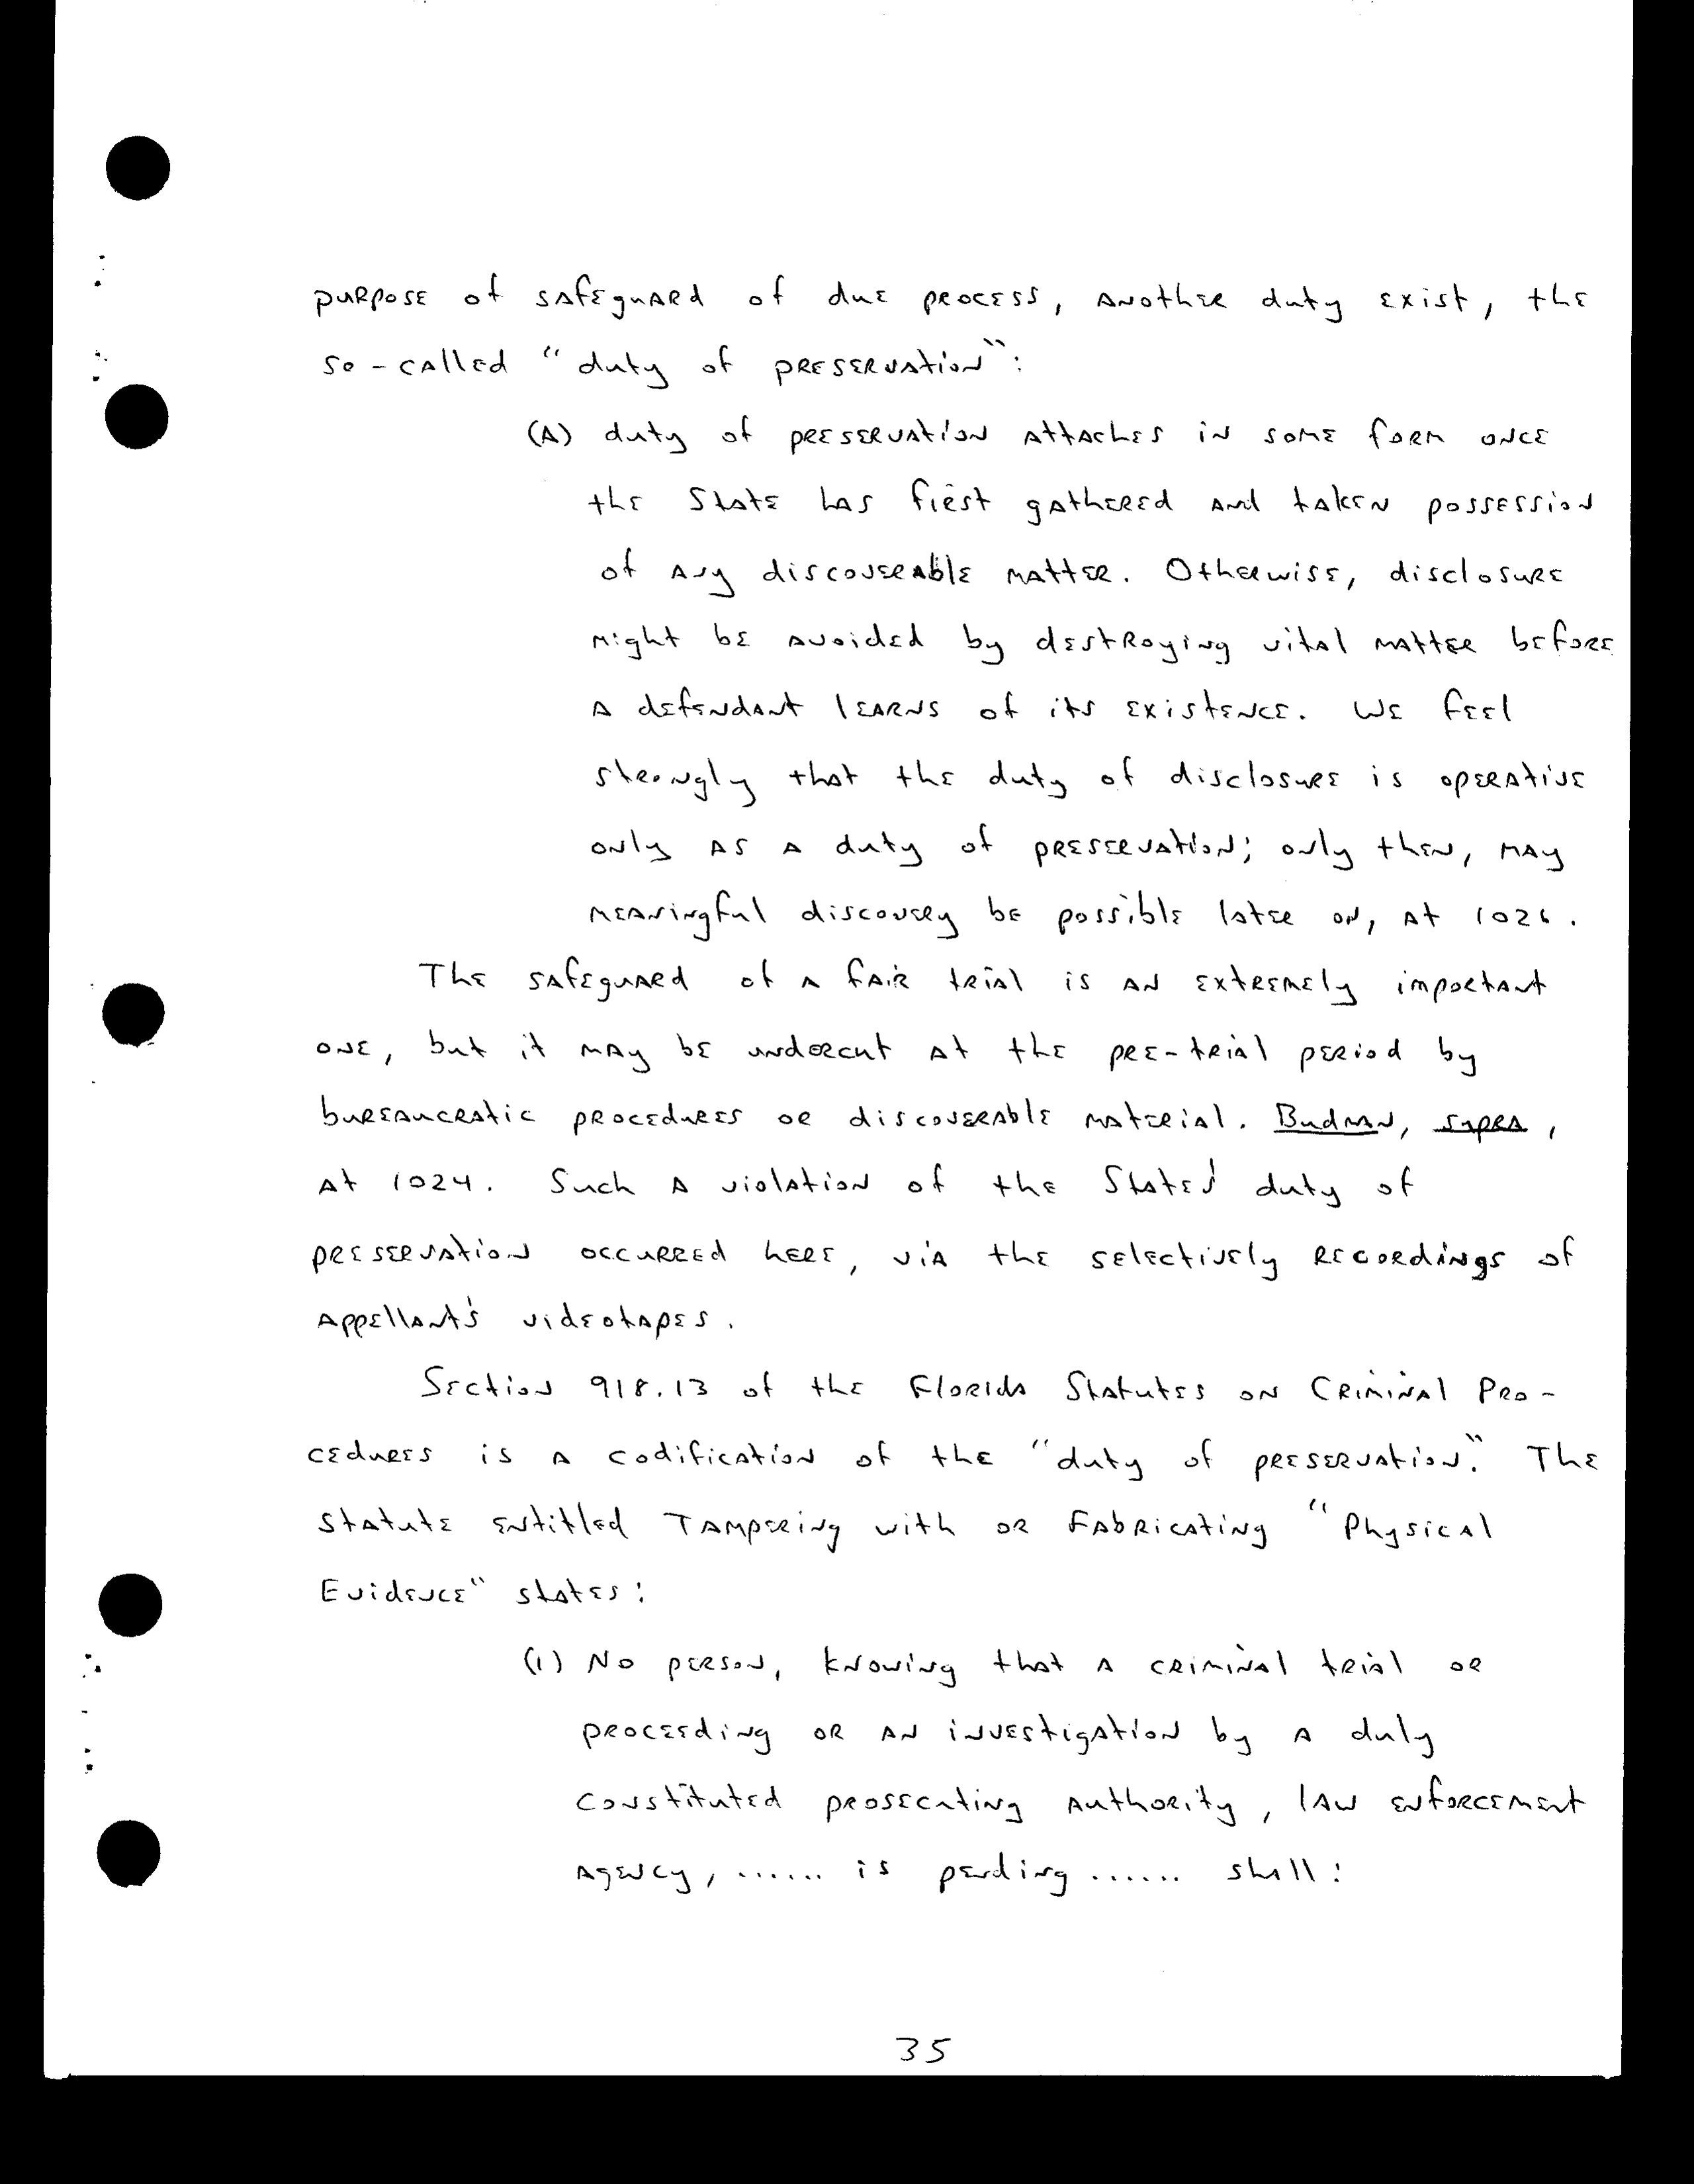 purpose of safeguard of due process, another duty exist, the
so-called "duty of preservation":
(A) duty of preservation attaches in some form once
the State has first gathered and taken possession
of any discoverable matter. Otherwise, disclosure
might be avoided by destroying vital matter before
a defendant learns of its existence. We feel
strongly that the duty of disclosure is operative
only as a duty of preservation; only then, may
meaningful discovery be possible later on, at 1026.
The safeguard of a fair trial is an extremely important
one, but it may be undercut at the pre-trial period by
bureaucratic procedures or discoverable material. Budman, supra,
at 1024. Such a violation of the States' duty of
preservation occurred here, via the selectively recordings of
Appellant's videotapes.
Section 918.13 of the Florida Statutes on Criminal Pro-
cedures is a codification of the "duty of preservation." The
statute entitled Tampering with or Fabricating "Physical
Evidence" states:
(1) No person, knowing that a criminal trial or
proceeding or an investigation by a duly
constituted prosecuting authority, law enforcement
agency, ...... is pending ...... shall:
35